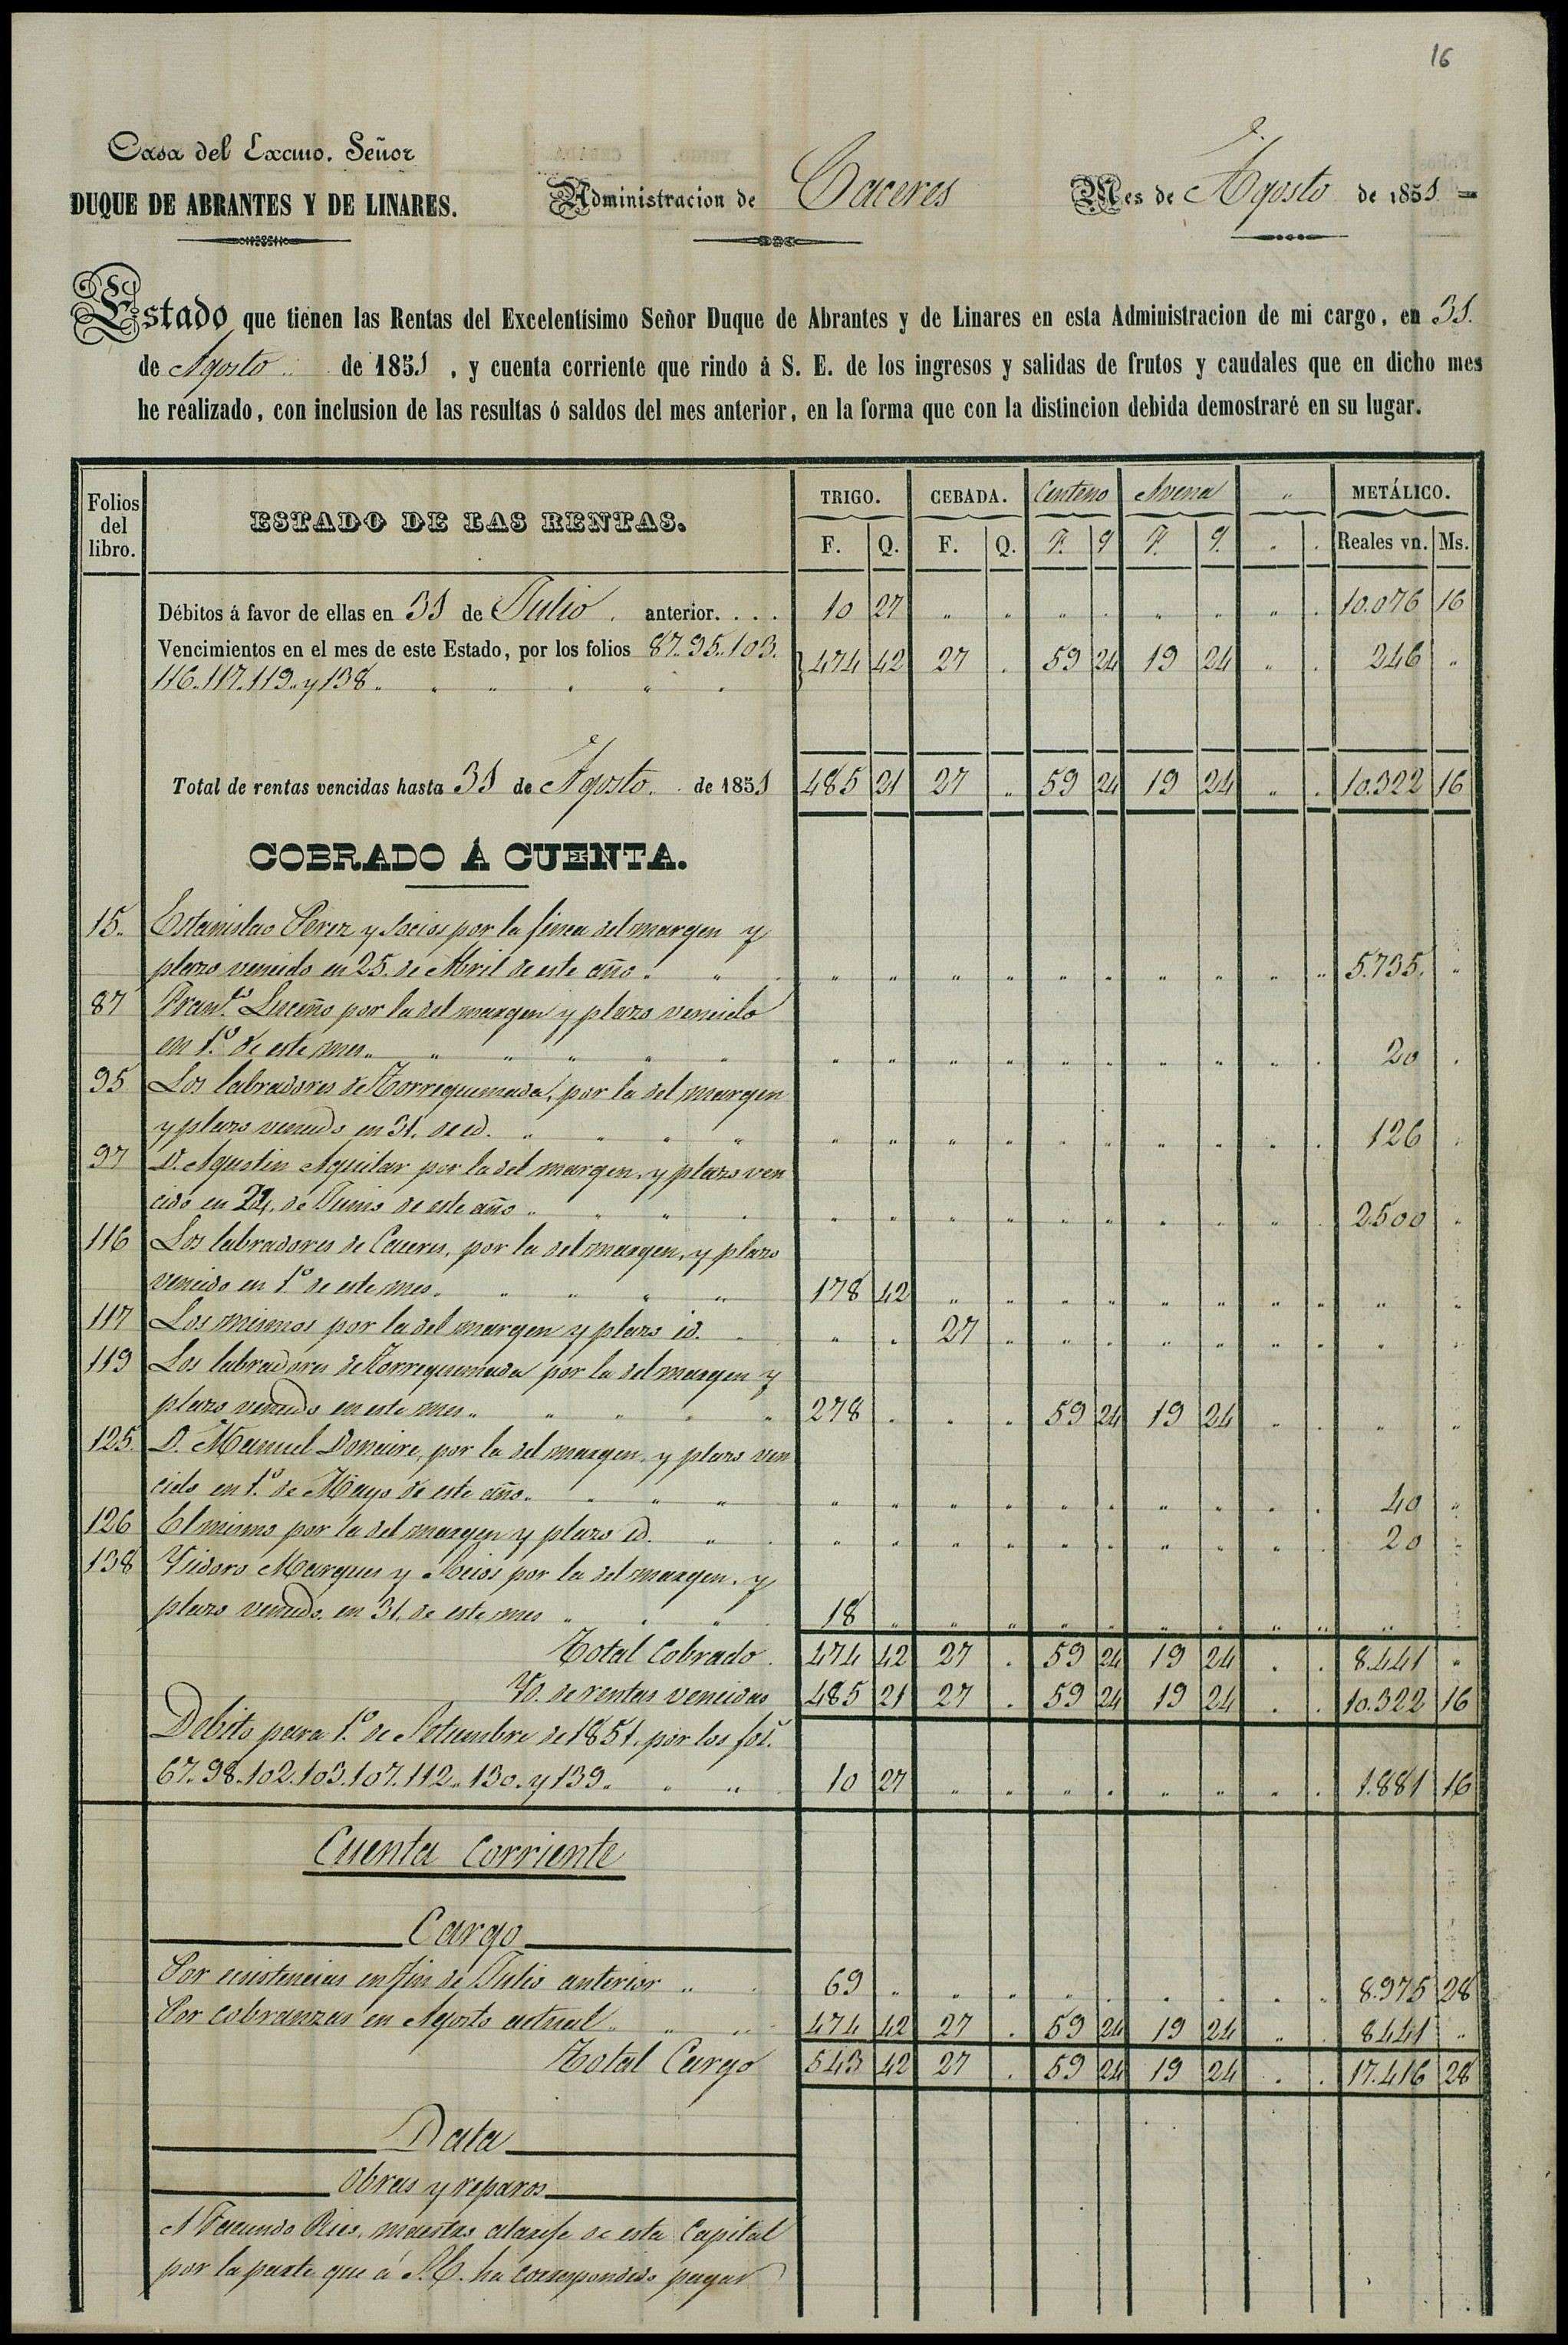 16
Casa del Excmo. Señor
DUQUE DE ABRANTES Y DE LINARES.
Administracion de Caceres
Mes de Agosto de 1851 =
Estado que tienen las Rentas del Excelentísimo Señor Duque de Abrantes y de Linares en esta Administracion de mi cargo, en 31.
de Agosto de 1851, y cuenta corriente que rindo á S. E. de los ingresos y salidas de frutos y caudales que en dicho mes
he realizado, con inclusion de las resultas ó saldos del mes anterior, en la forma que con la distincion debida demostraré en su lugar.
Folios del libro. ESTADO DE LAS RENTAS. TRIGO. CEBADA. Centeno Avena " METÁLICO.
F. Q. F. Q. F. q F. q. . . Reales vn. Ms.
Débitos á favor de ellas en 31 de Julio anterior. . . . 10 27 " " " " " " " . 10.076 16
Vencimientos en el mes de este Estado, por los folios 87. 95. 103.
116. 117. 119. y 138 " " " " 474 42 27 . 59 24 19 24 " . 246 "
Total de rentas vencidas hasta 31 de Agosto de 1851 485 21 27 " 59 24 19 24 " . 10.322 16
COBRADO Á CUENTA.
15. Estanislao Perez y Socios por la finca del margen y
plazo vencido en 25. de Abril de este año. " " " " " " " " " " " 5.735. "
87 Fran.co Luceño por la del margen y plazo vencido
en 1.º de este mes. " " " " " " " " " " " " " 20 .
95 Los labradores de Torrequemada, por la del margen
y plazo vencido en 31. de id. " " " " " " " " " " " " 126 .
97 D. Agustin Aguilar por la del margen, y plazo ven
cido en 24. de Junio de este año " " " " " " " " " " " 2500 "
116 Los labradores de Caceres, por la del margen, y plazo
vencido en 1.º de este mes. " " " " 178 42 " " " " " " " " " "
117 Los mismos por la del margen y plazo id. " " . 27 " " " " " " . . .
119 Los labradores de Torrequemada por la del margen y
plazo vencido en este mes. " " " " 278 . . . 59 24 19 24 " . " "
125 D. Manuel Donaire, por la del margen, y plazo ven
cido en 1.º de Mayo de este año. " " " " " " " " " " " . 40 "
126 El mismo por la del margen y plazo id. " " " " " " " " " " . 20 "
138 Ysidoro Marques y Socios por la del margen, y
plazo vencido, en 31. de este mes " " " 18 " " " " " " " " " "
Total Cobrado. 474 42 27 . 59 24 19 24 . . 8.441 "
Yd. de rentas vencidas 485 21 27 . 59 24 19 24 . . 10.322 16
Debito para 1.º de Setiembre de 1851. por los fol.
67. 98. 102. 103. 107. 112. 130. y 139. " " 10 27 " " " . " " " . 1.881 16
Cuenta Corriente
Cargo
Por existencias en fin de Julio anterior " 69 . . . . . . . . . 8.975 28
Por cobranzas en Agosto actual. " " 474 42 27 . 59 24 19 24 " . 8441 "
Total Cargo 543 42 27 . 59 24 19 24 . . 17.416 28
Data
Obras y reparos
A Facundo Rios, maestro alarife de esta Capital
por la parte que á S. E. ha correspondido pagar